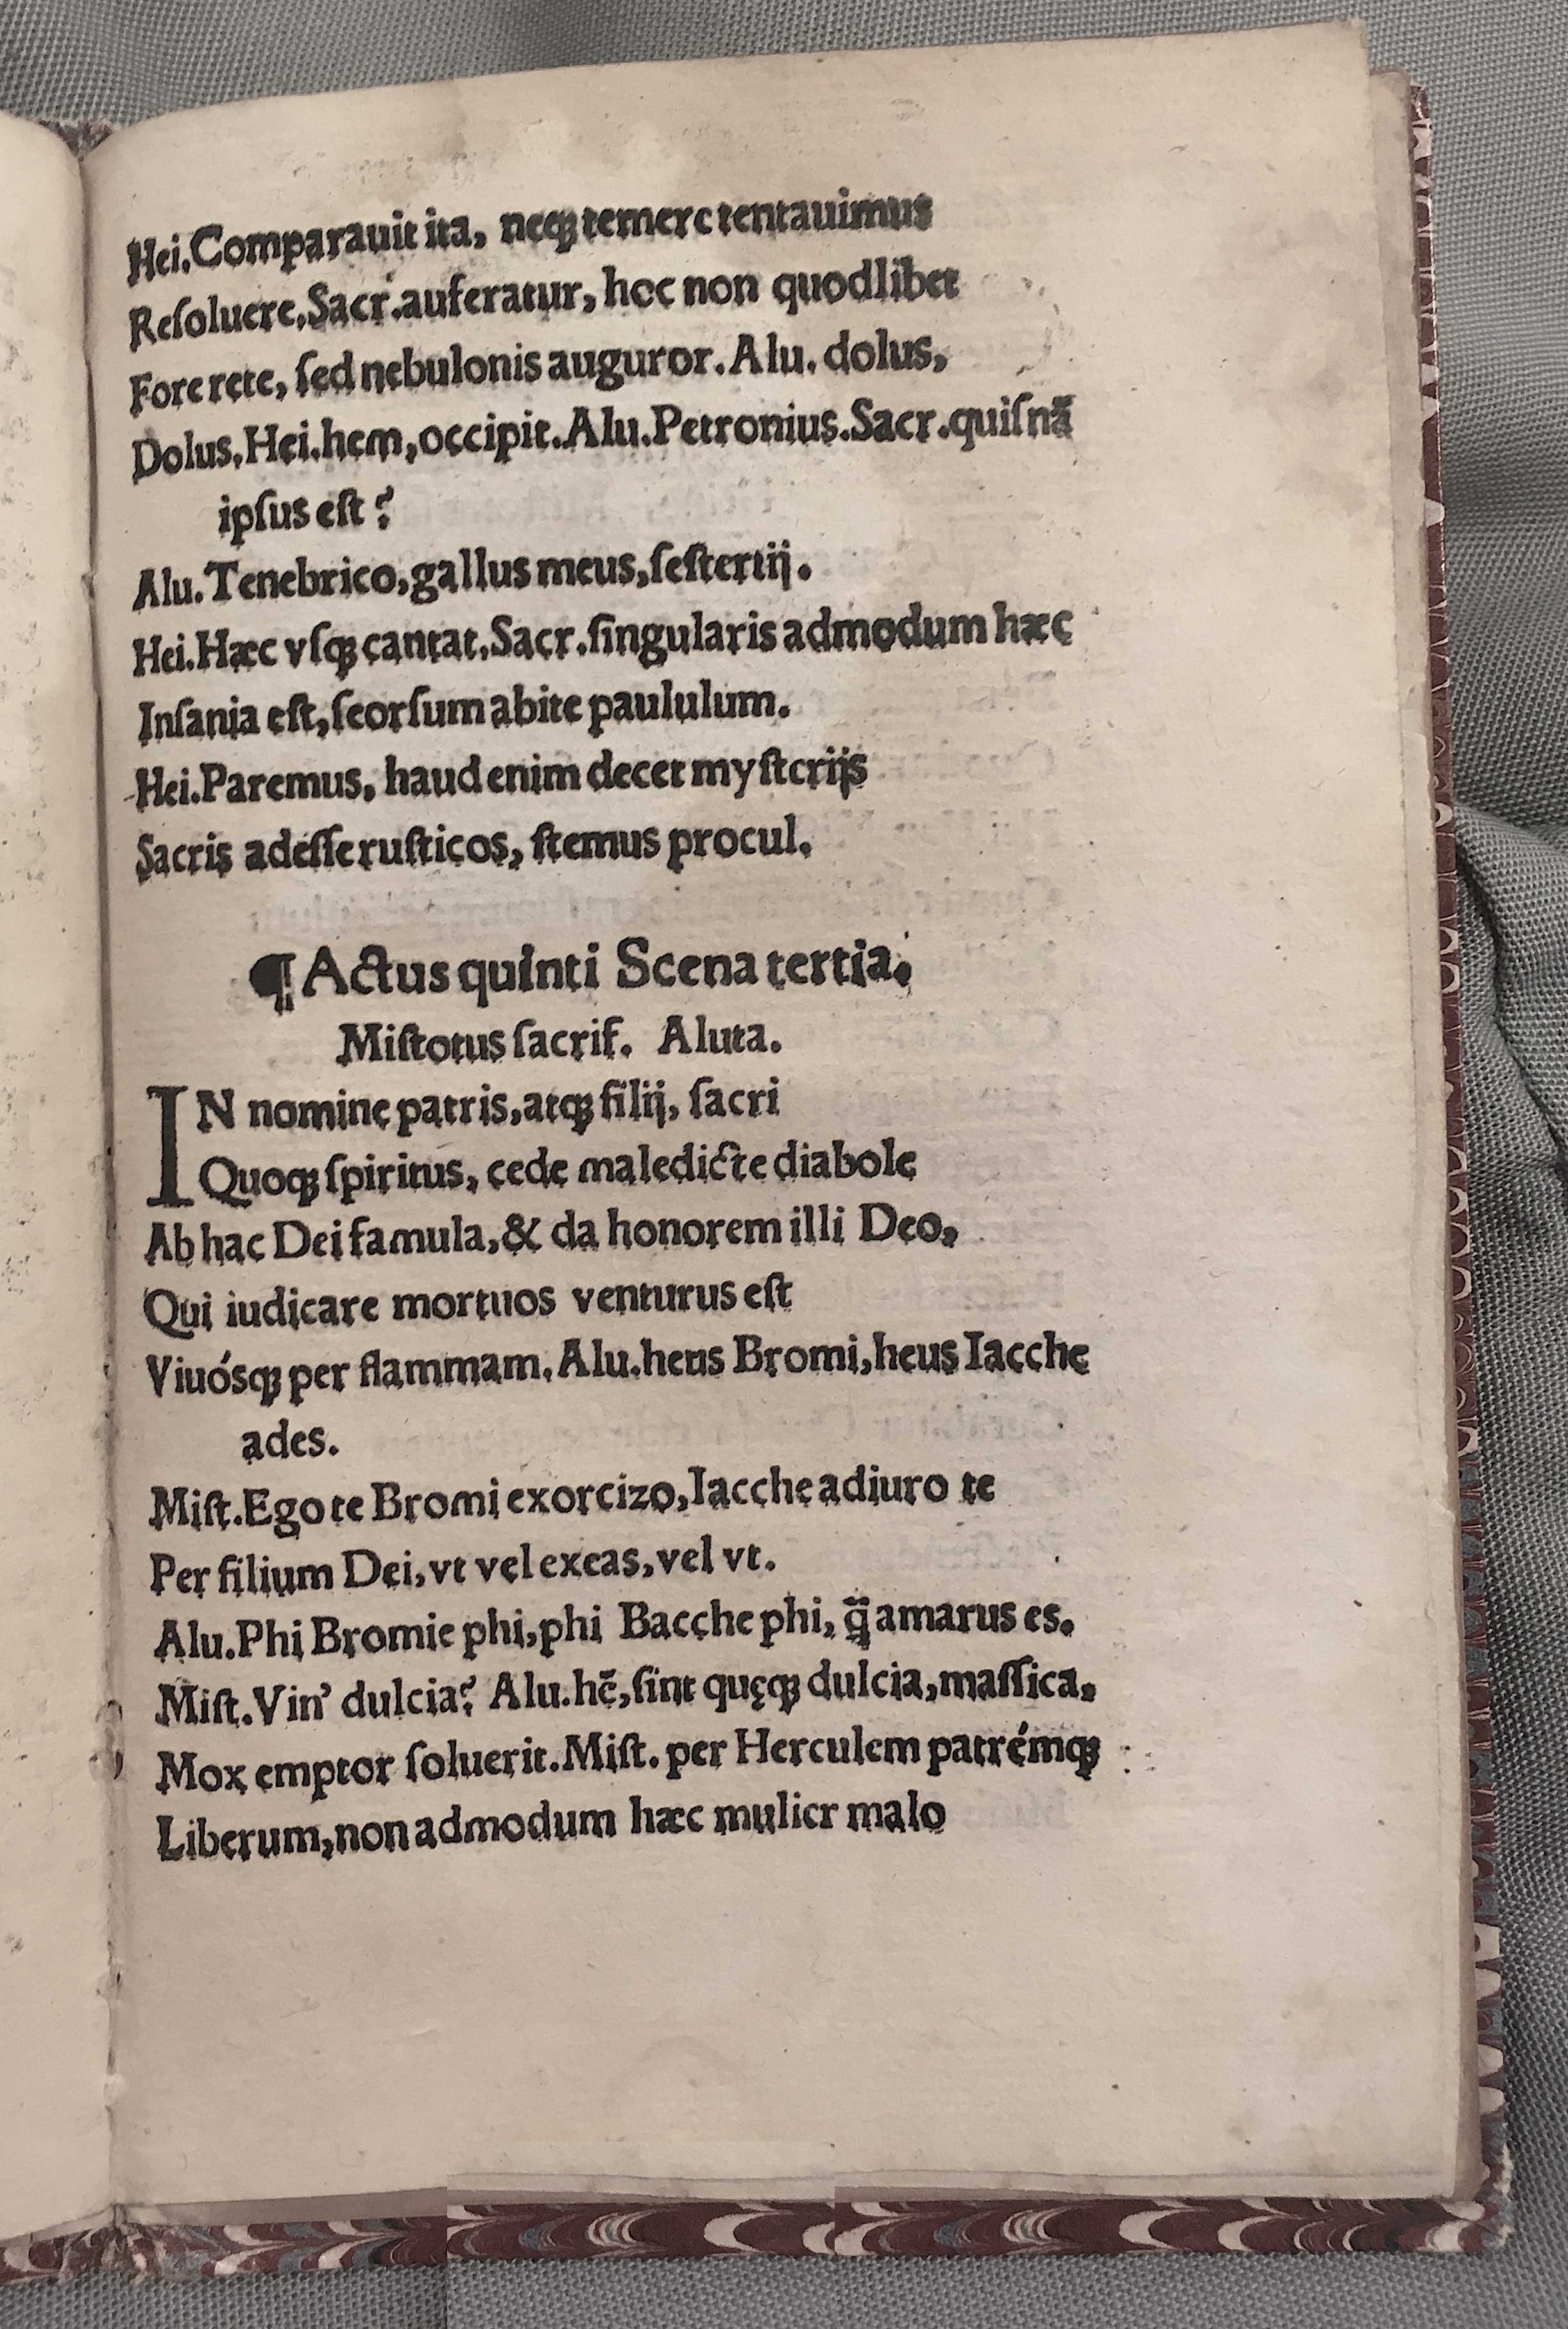 Hei.Comparauit ita, neqꝫ temere tentauimus
Reſoluere.Sacr.auferatur, hoc non quodlibet
Fore rete, ſed nebulonis auguror. Alu. dolus,
Dolus.Hei.hem,occipit.Alu.Petronius.Sacr.quiſnā
ipſus eſt?
Alu.Tenebrico,gallus meus,ſeſtertij.
Hei.Hæc vſqꝫ cantat.Sacr.ſingularis admodum hæc
Inſania eſt,ſeorſum abite paululum.
Hei.Paremus, haud enim decet myſterijs
Sacris adeſſe ruſticos, ſtemus procul.
¶ Actus quinti Scena tertia.
Miſtotus ſacrif. Aluta.
IN nomine patris,atqꝫ filij, ſacri
Quoqꝫ ſpiritus, cede maledicte diabole
Ab hac Dei famula,& da honorem illi Deo,
Qui iudicare mortuos venturus eſt
Viuósqꝫ per flammam.Alu.heus Bromi,heus Iacche
ades.
Miſt.Ego te Bromi exorcizo,Iacche adiuro te
Per filium Dei,vt vel exeas,vel vt.
Alu.Phi Bromie phi,phi Bacche phi, q̄̈ amarus es.
Miſt.Vin' dulcia? Alu.hē,ſint quęqꝫ dulcia,maſſica,
Mox emptor ſoluerit.Miſt. per Herculem patrémqꝫ
Liberum,non admodum hæc mulier malo